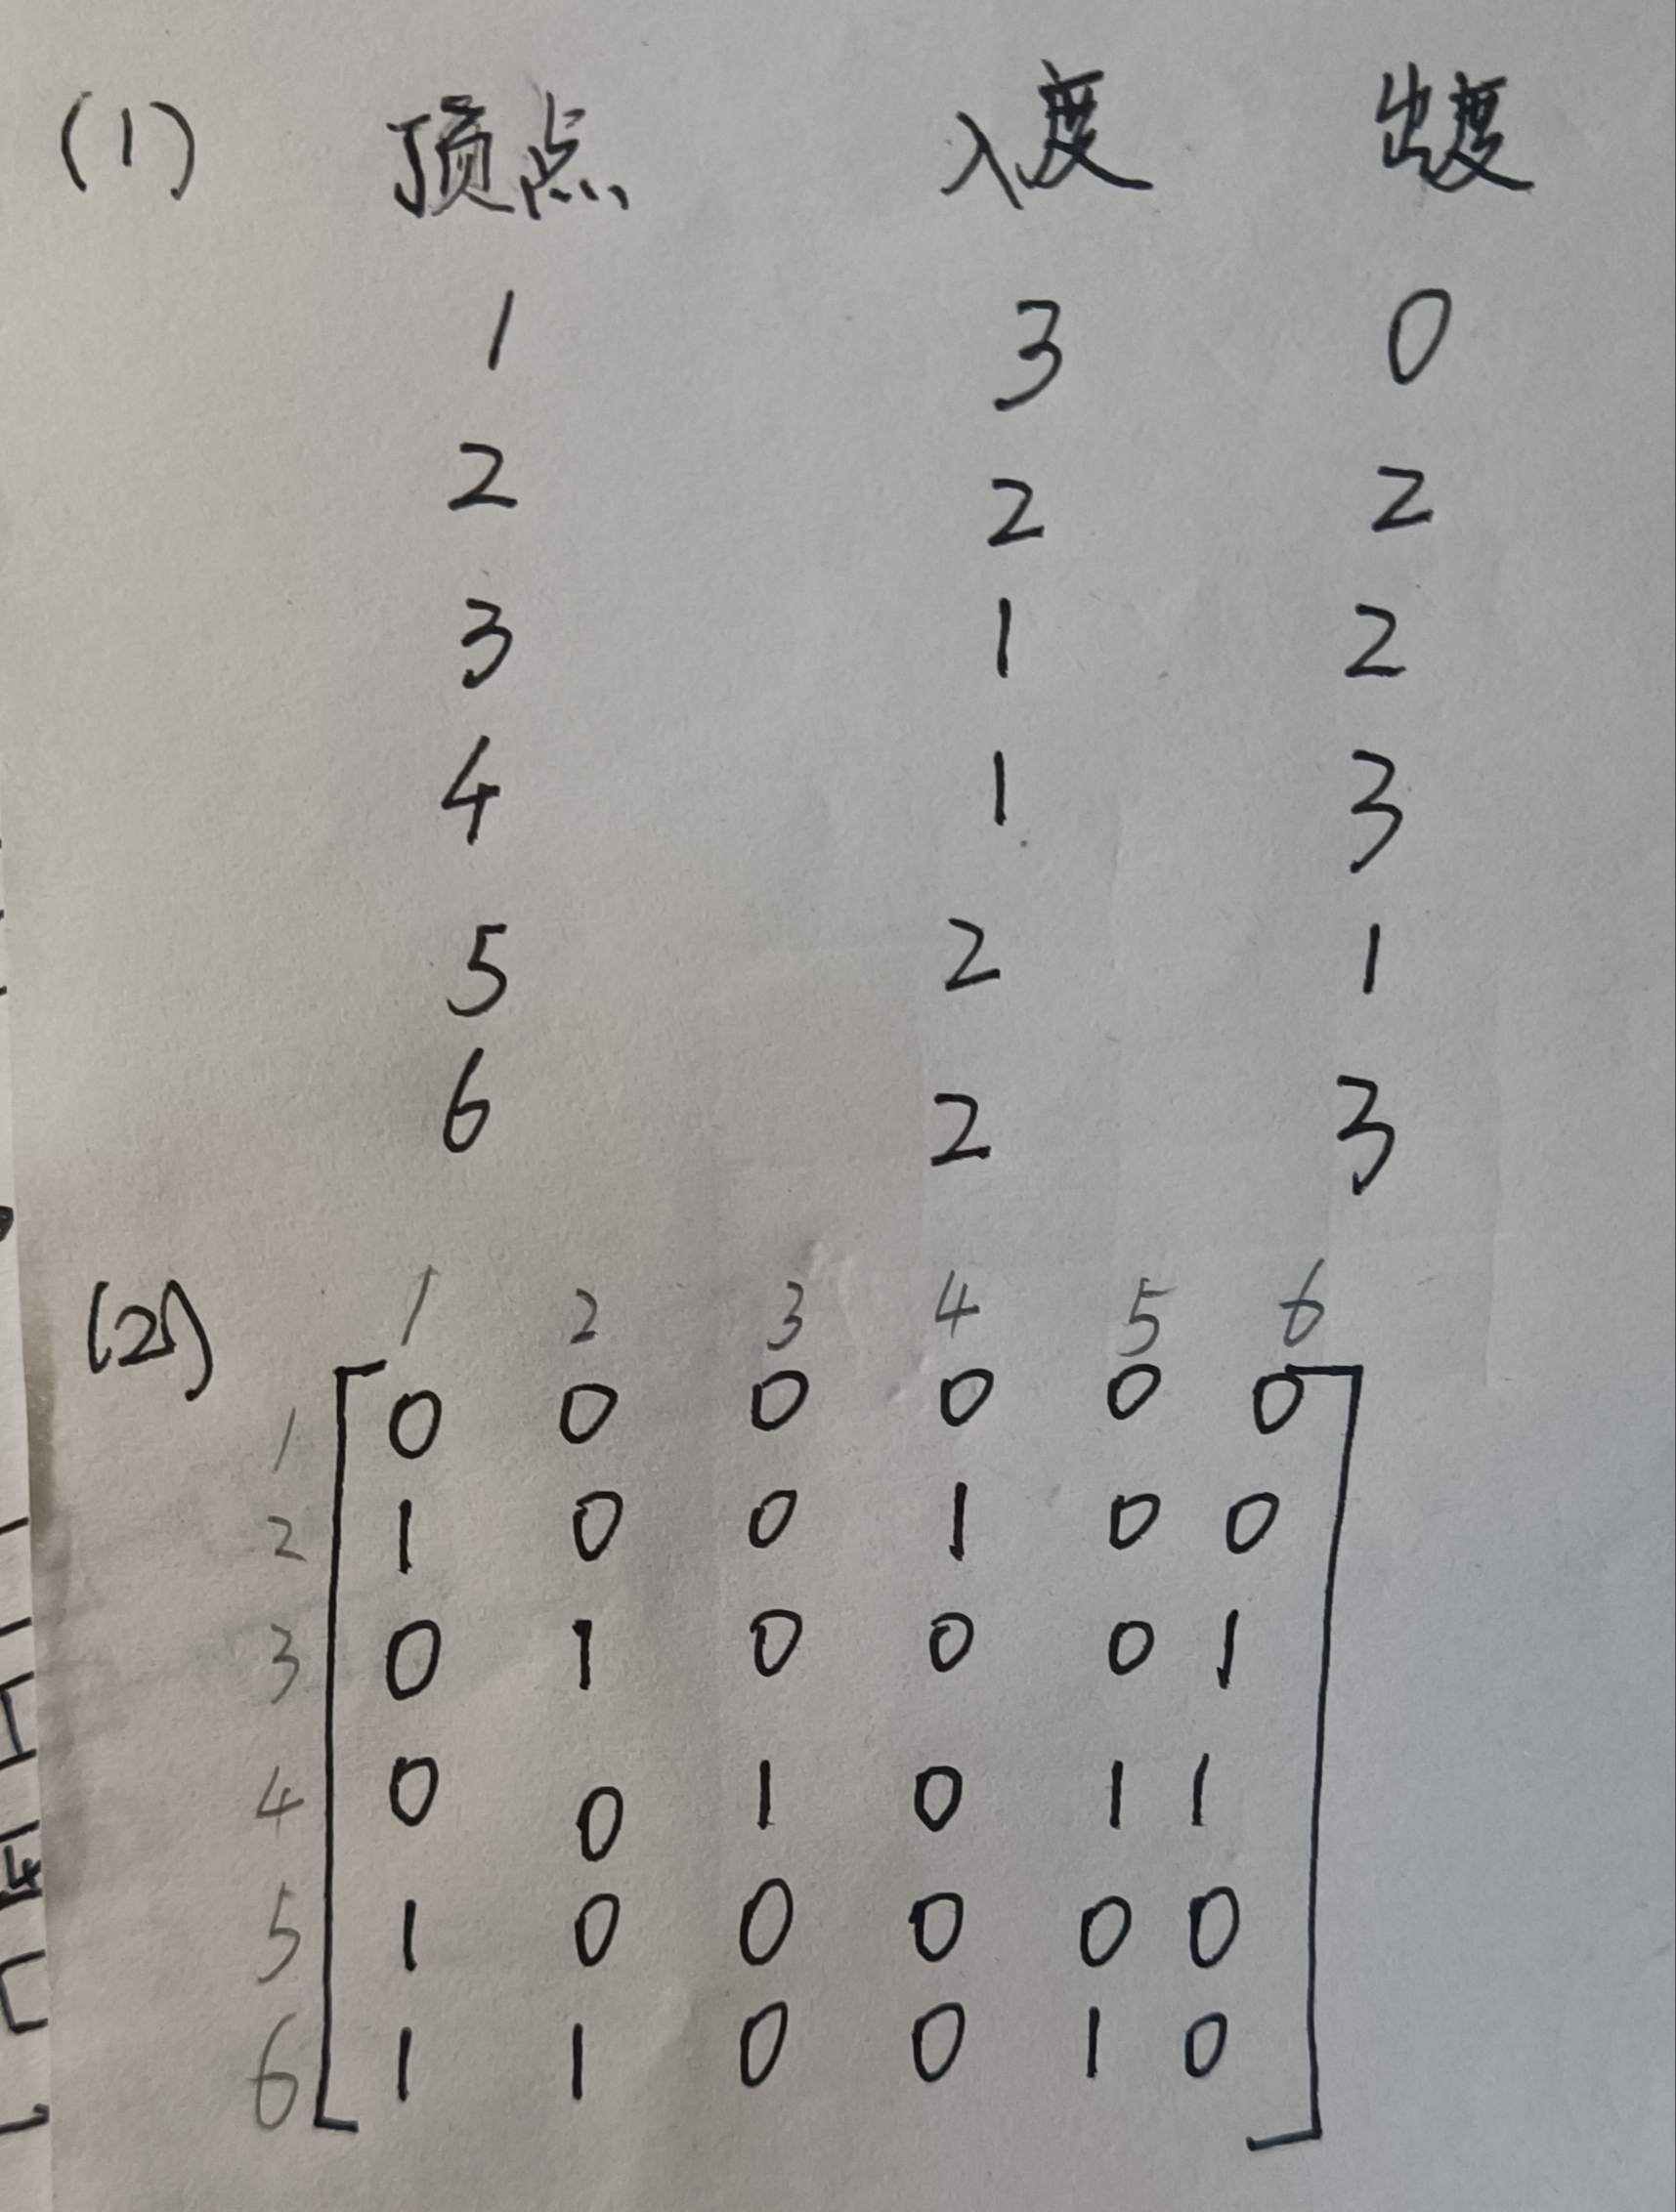 (1) 顶点 入度 出度
1 3 0
2 2 2
3 1 2
4 1 3
5 2 1
6 2 3
(2) 1 2 3 4 5 6
1 0 0 0 0 0 0
2 1 0 0 1 0 0
3 0 1 0 0 0 1
4 0 0 1 0 1 1
5 1 0 0 0 0 0
6 1 1 0 0 1 0